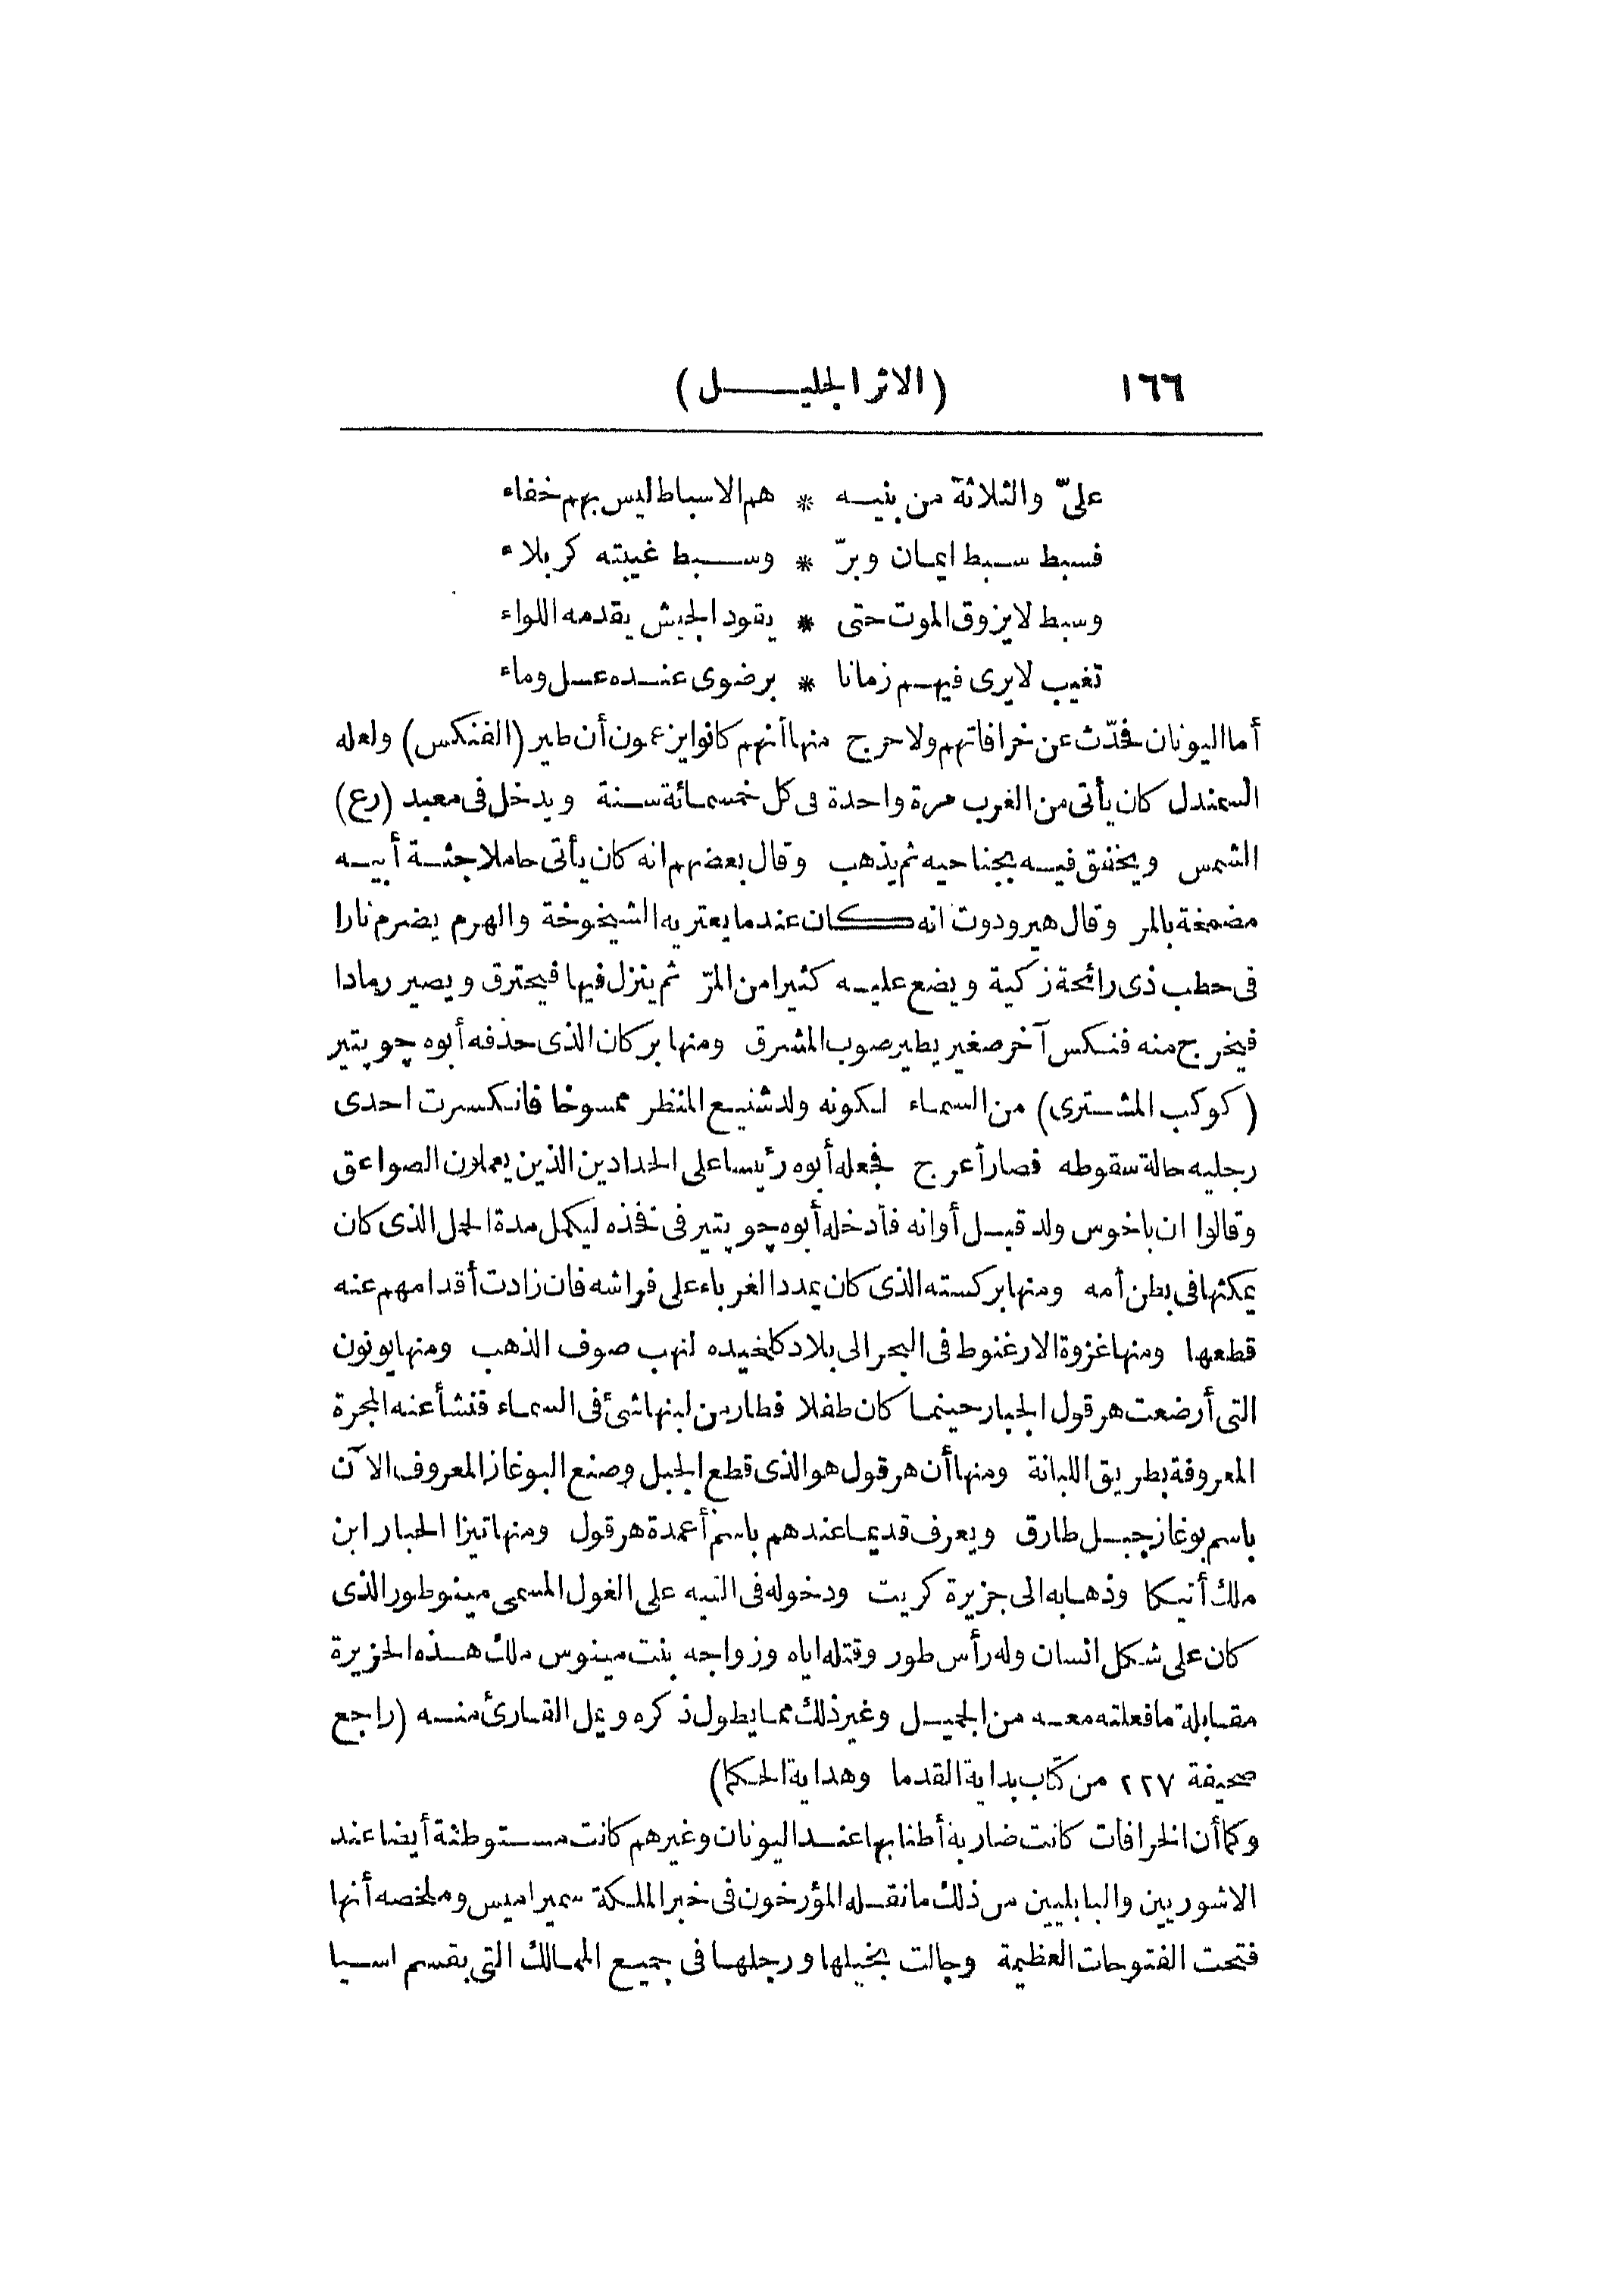 ١٦٦ (الاثر الجليل)
علىّ والثلاثة من بنيه * هم الاسباط ليس بهم خفاء
فسبط سبط ايمان وبرّ * وسبط غيبته كربلاء
وسبط لايزوق الموت حتى * يقود الجيش يقدمه اللواء
تغيب لايرى فيهم زمانا * برضوى عنده عسل وماء
أما اليونان فحدّث عن خرافاتهم ولاحرج منها أنهم كانوا يزعمون أن طير (الفنكس) ولعله
السمندل كان يأتى من الغرب مرة واحدة فى كل خمسمائة سنة ويدخل فى معبد (رع)
الشمس ويخفق فيه بجناحيه ثم يذهب وقال بعضهم انه كان يأتى حاملا جثة أبيه
مضمغة بالمر وقال هيرودوت انه كان عندما يعتريه الشيخوخة والهرم يضرم نارا
فى حطب ذى رائحة زكية ويضع عليه كثيرا من المرّ ثم ينزل فيها فيحترق ويصير رمادا
فيخرج منه فنكس آخر صغير يطير صوب المشرق ومنها بركان الذى حذفه أبوه چوپتير
(كوكب المشترى) من السماء لكونه ولد شنيع المنظر ممسوخا فانكسرت احدى
رجليه حالة سقوطه فصار أعرج فجعله أبوه رئيسا على الحدادين الذين يعملون الصواعق
وقالوا ان باخوس ولد قبل أوانه فأدخله أبوه چوپتير فى فخذه ليكمل مدة الحمل الذى كان
يمكثها فى بطن أمه ومنها بركسته الذى كان يمدد الغرباء على فراشه فان زادت أقدامهم عنه
قطعها ومنها غزوة الارغنوط فى البحر الى بلاد كلخيده لنهب صوف الذهب ومنها يونون
التى أرضعت هرقول الجبار حينما كان طفلا فطار من لبنها شئ فى السماء فنشأ عنه المجرة
المعروفة بطريق اللبانة ومنها أن هرقول هو الذى قطع الجبل وصنع البوغاز المعروف الآن
باسم بوغاز جبل طارق ويعرف قديما عندهم باسم أعمدة هرقول ومنها تيزا الجبار ابن
ملك أتيكا وذهابه الى جزيرة كريت ودخوله فى التيه على الغول المسمى مينوطور الذى
كان على شكل انسان وله رأس طور وقتله اياه وزواجه بنت مينوس ملك هذه الجزيرة
مقابلة ما فعلته معه من الجميل وغير ذلك مما يطول ذكره ويمل القارئ منه (راجع
صحيفة ٢٢٧ من كتاب بداية القدما وهداية الحكما)
وكما أن الخرافات كانت ضاربة أطنابها عند اليونان وغيرهم كانت مستوطنة أيضا عند
الاشوريين والبابليين من ذلك ما نقله المؤرخون فى خبر الملكة سميراميس وملخصه أنها
فتحت الفتوحات العظيمة وجالت بخيلها ورجلها فى جميع الممالك التى بقسم اسيا